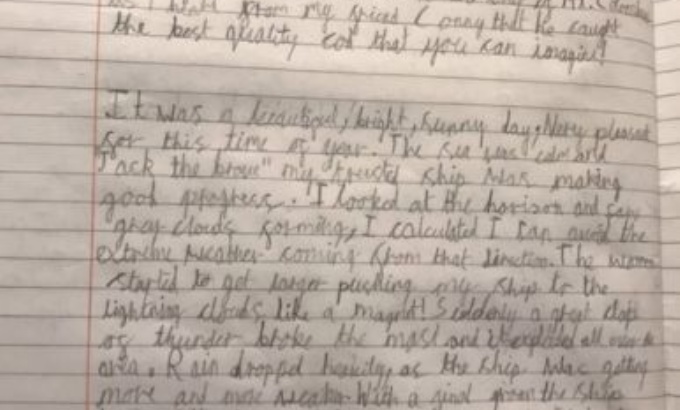 as I heard from my friend Conny that he caught
the best quality cod that you can imagine!
It was a beautiful, bright, sunny day, Very pleasant
for this time of year. The sea was calm and
"Jack the brave" my trusted ship was making
good progress. I looked at the horizon and saw
gray clouds forming, I calculated I can avoid the
extreme weather coming from that direction. The
started to get larger pushing my ship to the
lightning clouds like a magnet! Suddenly a great clap
of thunder broke the mast and exploded all
area. Rain dropped heavily, as the ship was getting
more and more With a final groan the ship